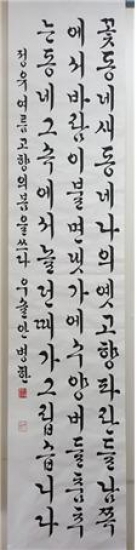 꽃동네새동네나의옛고향파란들남쪽
에서바람이불면냇가에수양버들춤추
는동네그속에서놀던때가그립습니다
정유여름고향의봄을쓰다 우솔안병한